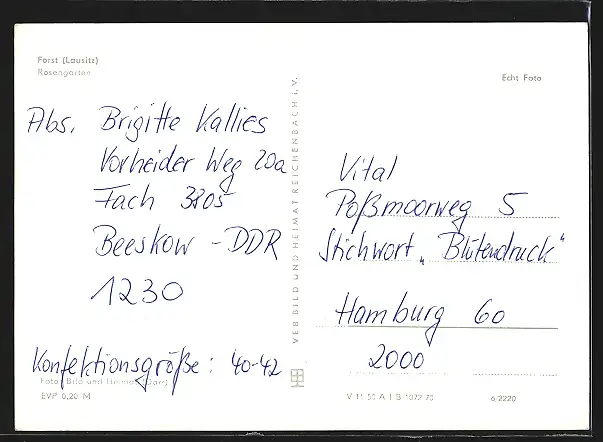 Forst (Lausitz)
Rosengarten
Echt Foto
Abs. Brigitte Kallies
Vorheider Weg 20a
Fach 3205
Beeskow - DDR
1230
Konfektionsgröße: 40-42
Foto: Bild und Heimat (Darr)
EVP 0,20 M
VEB BILD UND HEIMAT REICHENBACH I. V.
Vital
Poßmoorweg 5
Stichwort „Blütendruck"
Hamburg 60
2000
V 11 50 A 1 B 1072 70
6/2220